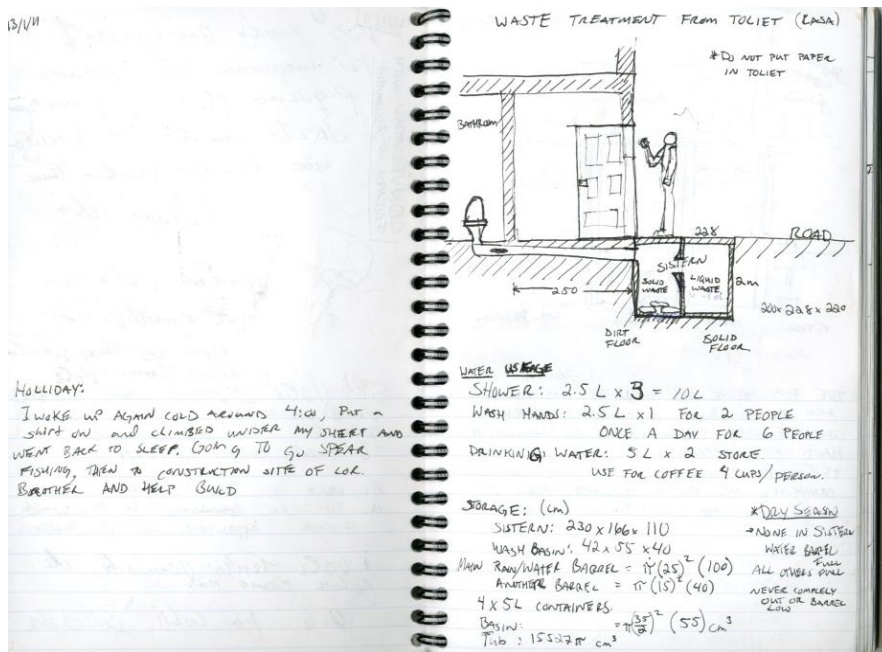 HOLLIDAY:
I WOKE UP AGAIN COLD AROUND 4:00, PUT A
SHIRT ON AND CLIMBED UNDER MY SHEET AND
WENT BACK TO SLEEP. GOING TO GO SPEAR
FISHING, THEN TO CONSTRUCTION SITE OF
BROTHER AND HELP BUILD
WASTE TREATMENT FROM TOLIET (CASA)
*DO NOT PUT PAPER
IN TOLIET
BATHROOM
228
ROAD
SISTERN
SOLID
WASTE
LIQUID
WASTE
2m
250
200 x 228 x 220
DIRT
FLOOR
SOLID
FLOOR
WATER USEAGE
SHOWER: 2.5 L x 3 = 10 L
WASH HANDS: 2.5 L x 1 FOR 2 PEOPLE
ONCE A DAY FOR 6 PEOPLE
DRINKING WATER: 5 L x 2 STORE.
USE FOR COFFEE 4 CUPS/PERSON.
STORAGE: (cm)
SISTERN: 230 x 166 x 110
WASH BASIN: 42 x 55 x 40
MAIN RAIN/WATER BARREL = π(25)² (100)
ANOTHER BARREL = π(15)² (40)
4 x 5L CONTAINERS.
BASIN: = π(35/2)² (55) cm³
TUB: 15527π cm³
*DRY SEASON
→ NONE IN SISTERN
WATER BARREL
FULL
ALL OTHERS FULL
NEVER COMPLELY
OUT OR BARREL
LOW